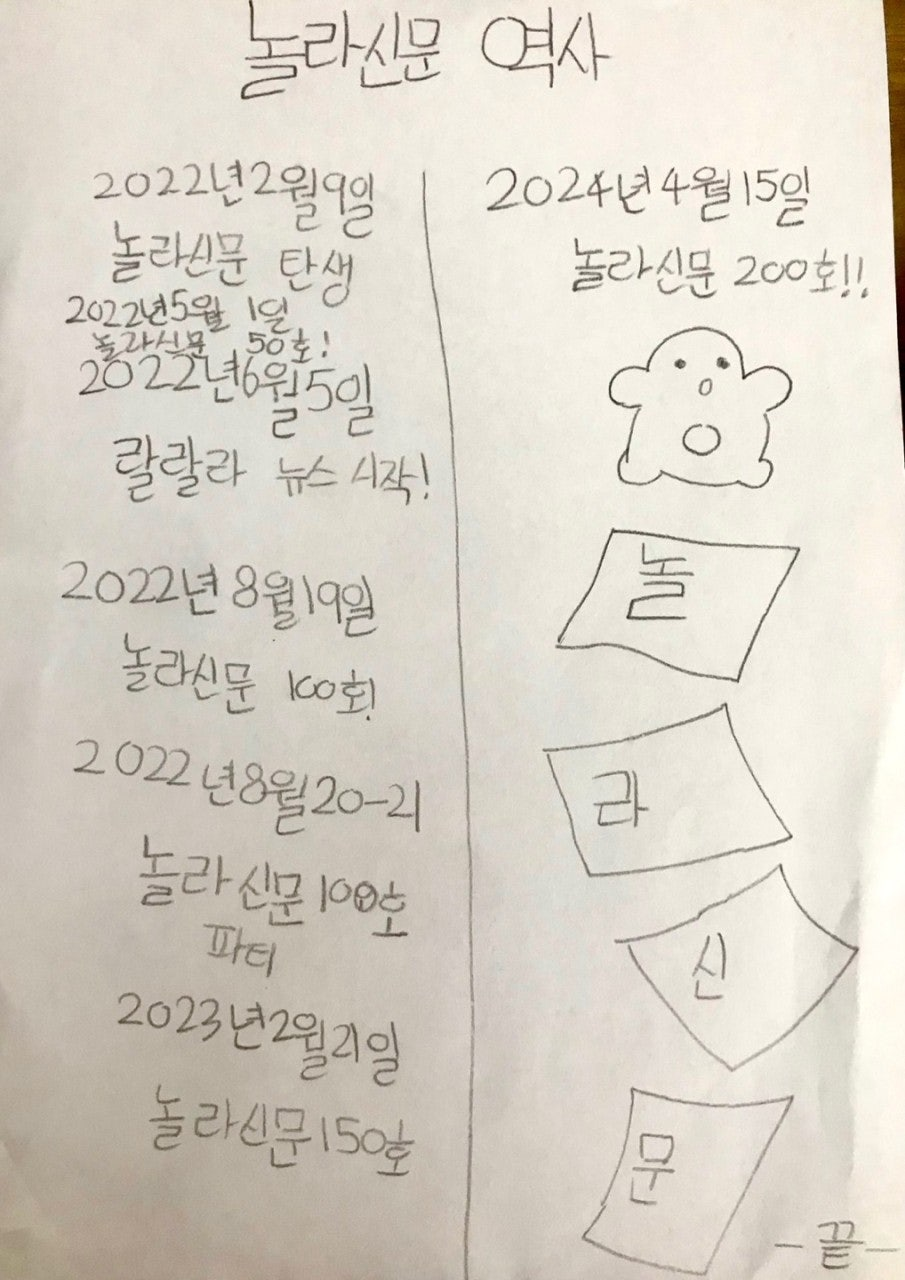 놀라신문 역사
2022년2월9일
놀라신문 탄생
2022년5월 1일
놀라신문 50호!
2022년6월5일
랄랄라 뉴스 시작!
2022년 8월19일
놀라신문 100회!
2022년8월20-21
놀라신문100호
파티
2023년2월21일
놀라신문150호
2024년4월15일
놀라신문 200호!!
놀
라
신
문
-끝-